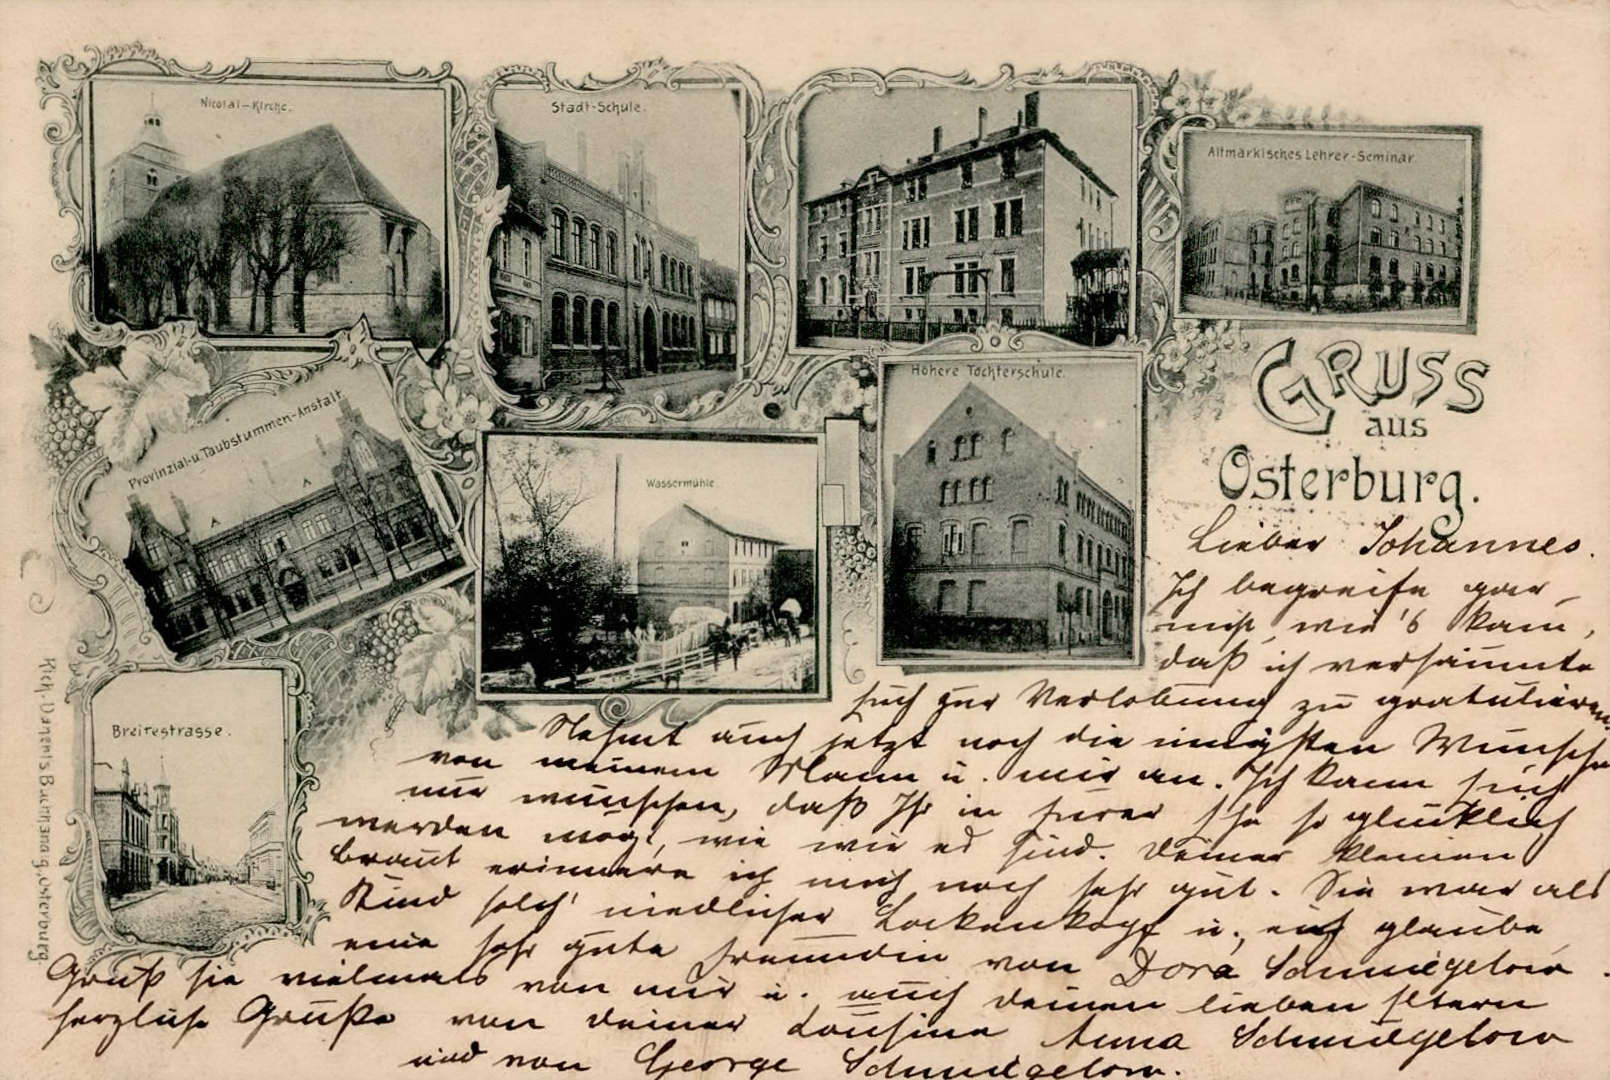 Nicolai-Kirche.
Stadt-Schule.
Altmärkisches Lehrer-Seminar.
Höhere Töchterschule.
Provinzial-u Taubstummen-Anstalt
Wassermühle
Breitestrasse.
Gruss
aus
Osterburg.
Lieber Johannes.
Ich begreife gar
nicht, wie's kam,
daß ich versäumte
Euch zur Verlobung zu gratulieren.
Nehmt auch jetzt noch die innigsten Wünsche
von meinem Mann u. mir an. Ich kann Euch
nur wünschen, daß Ihr in Eurer Ehe so glücklich
werden mögt, wie wir es sind. Deiner kleinen
Braut erinnere ich mich noch sehr gut. Sie war als
Kind solch' niedlicher Lockenkopf u., ich glaube,
eine sehr gute Freundin von Dora Schmiegelow.
Grüß sie vielmals von mir u. auch deinen lieben Eltern
herzliche Grüße von deiner Cousine Anna Schmiegelow
und von George Schmiegelow.
Danehl's Buchhandg. Osterburg.